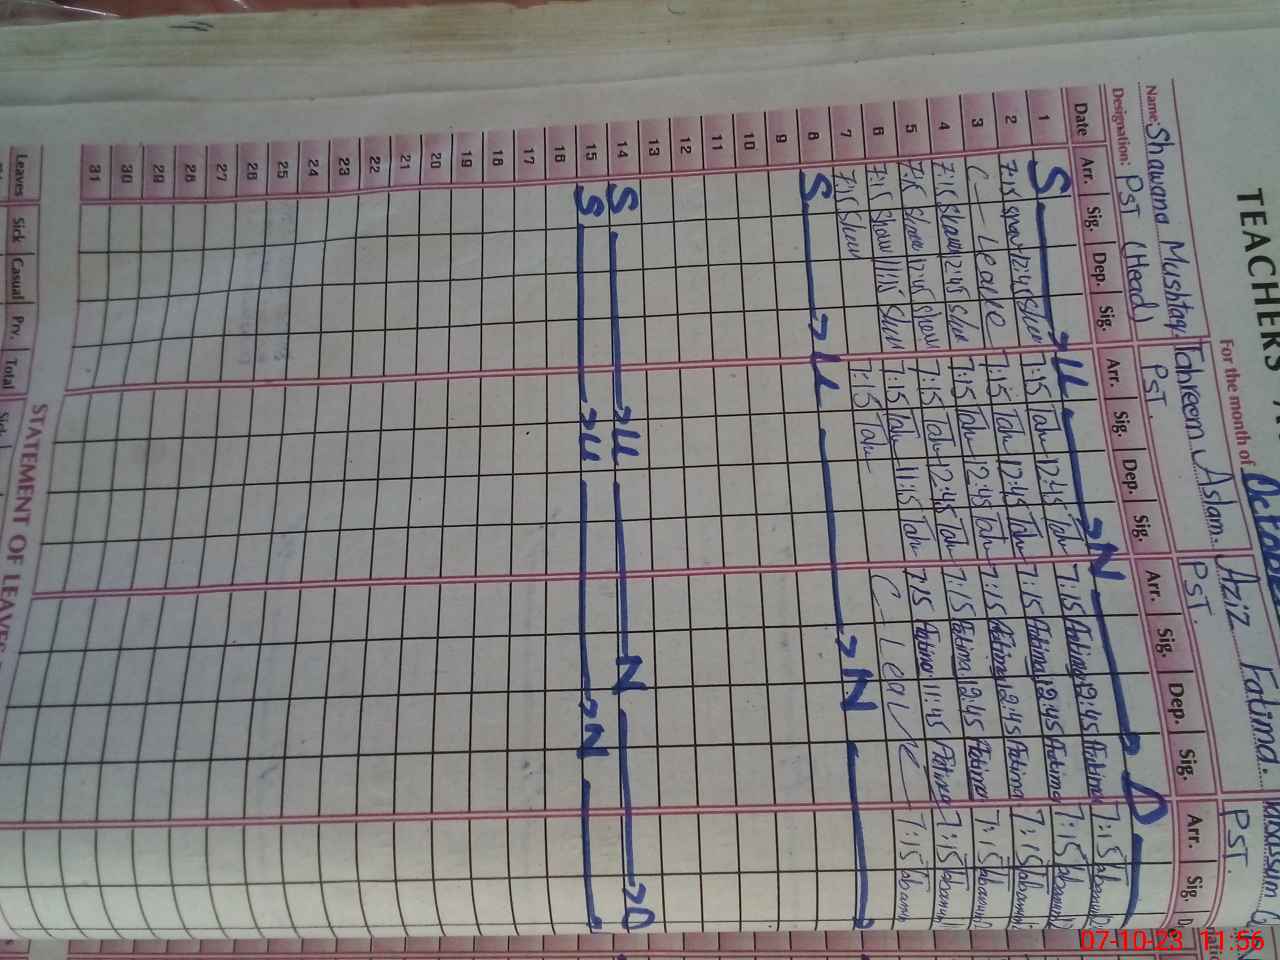 TEACHERS
For the month of October
Name: Shawana Mushtaq Tahreem Aslam. Aziz Fatima.
Designation: PST (Head) PST. PST. PST.
Date Arr. Sig. Dep. Sig. Arr. Sig. Dep. Sig. Arr. Sig. Dep. Sig. Arr. Sig.
1 S U N D
2 7:15 12:45 7:15 Tah 12:45 Tah 7:15 Fatima 12:45 Fatima 7:15
3 C - Leave 7:15 Tah 12:45 Tah 7:15 Fatima 12:45 Fatima 7:15
4 7:15 12:45 7:15 Tah 12:45 Tah 7:15 Fatima 12:45 Fatima 7:15
5 7:15 12:45 7:15 Tah 12:45 Tah 7:15 Fatima 12:45 Fatima 7:15
6 7:15 11:15 7:15 Tah 11:15 Tah 7:15 Fatima 11:45 Fatima 7:15
7 7:15 7:15 Tah C - Leave 7:15
8 S U N
9
10
11
12
13
14 S U N D
15 S U N
16
17
18
19
20
21
22
23
24
25
26
27
28
29
30
31
STATEMENT OF LEAVES
Leaves Sick Casual Prv. Total
07-10-23 11:56